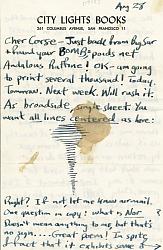 Aug 28
CITY LIGHTS BOOKS
261 COLUMBUS AVENUE, SAN FRANCISCO 11
Cher Corso— Just back from Big Sur
& found your BOMB =
Andalous Rutline! OK— am going
to print several thousand! Today.
Tomorrow. Next week. Will rush it.
As broadside, single sheet. You
want all lines centered, as here:
Right? If not let me know airmail.
One question in copy: what is
Doesn't mean anything to me, but that's
no sign.... Great poem! In spite
of fact that it exhibits some